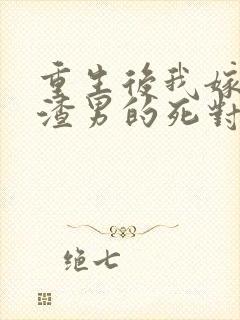 重生後我嫁
渣男的死對
绝七